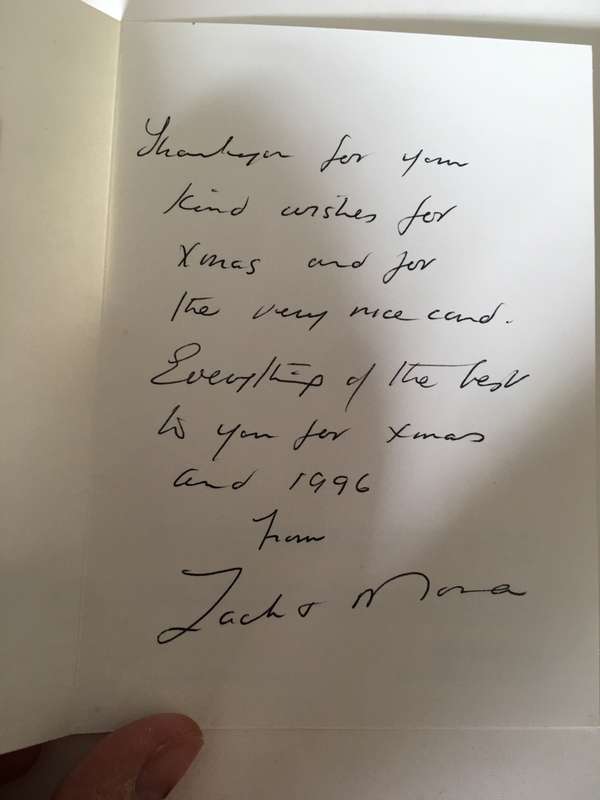 Thankyou for your
kind wishes for
Xmas and for
the very nice card.
Everything of the best
to you for Xmas
and 1996
from
Zach & Mona